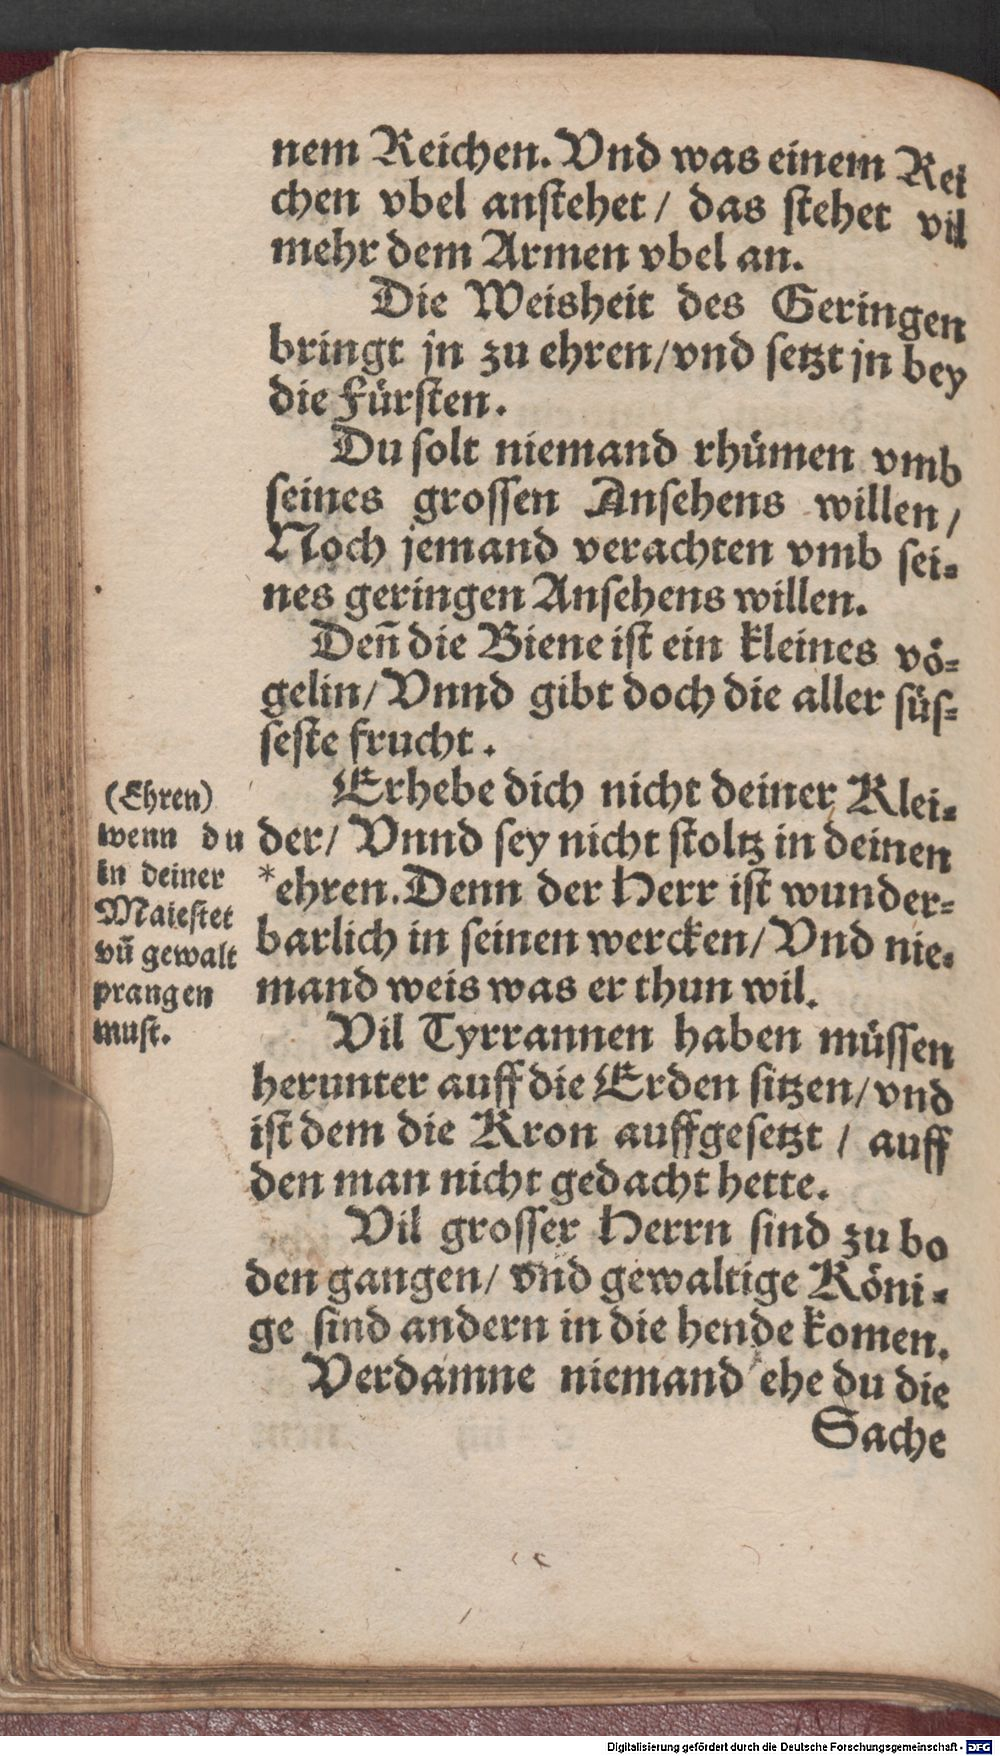 nem Reichen. Vnd was einem Rei
chen vbel anstehet / das stehet vil
mehr dem Armen vbel an.
Die Weisheit des Geringen
bringt jn zu ehren/vnd setzt jn bey
die Fürsten.
Du solt niemand rhümen vmb
seines grossen Ansehens willen/
Noch jemand verachten vmb sei=
nes geringen Ansehens willen.
Deñ die Biene ist ein kleines vö=
gelin/ Vnnd gibt doch die aller süs=
seste frucht.
Erhebe dich nicht deiner Klei=
der/ Vnnd sey nicht stoltz in deinen
*ehren. Denn der Herr ist wunder=
barlich in seinen wercken/ Vnd nie=
mand weis was er thun wil.
(Ehren)
wenn du
in deiner
Maiestet
vñ gewalt
prangen
must.
Vil Tyrrannen haben müssen
herunter auff die Erden sitzen/vnd
ist dem die Kron auffgesetzt / auff
den man nicht gedacht hette.
Vil grosser Herrn sind zu bo
den gangen/ vnd gewaltige Köni=
ge sind andern in die hende komen.
Verdamne niemand ehe du die
Sache
Digitalisierung gefördert durch die Deutsche Forschungsgemeinschaft - DFG